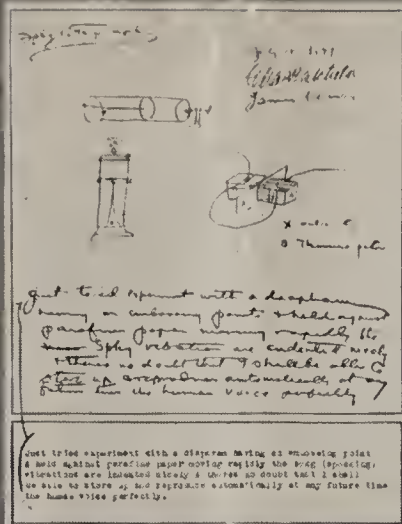 James
Just tried experiment with a diaphram
having an embossing point & held against
parafine paper moving rapidly the
Spkg vibrations are indented nicely
& theres no doubt that I shall be able to
store up & reproduce automatically at any
future time the human voice perfectly
Just tried experiment with a diapram having an embossing point
& held against parafine paper moving rapidly the spkg (speaking)
vibrations are indented nicely & theres no doubt that I shall
be able to store up and reproduce automatically at any future time
the human voice perfectly.